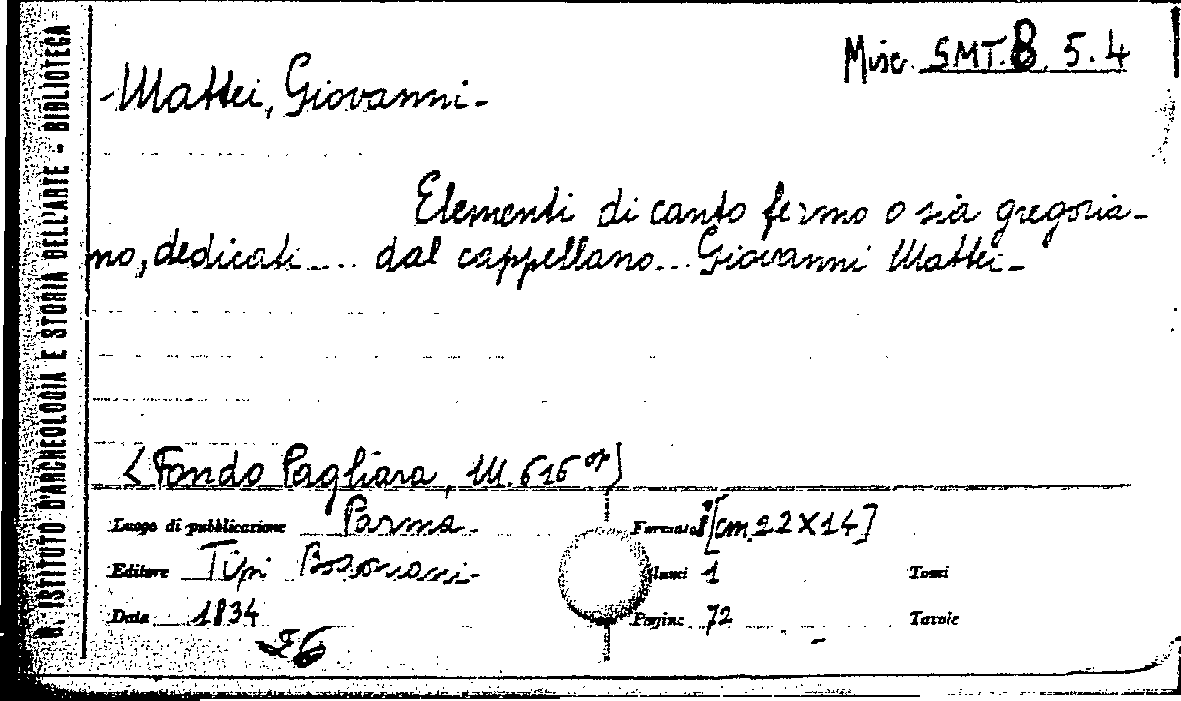 Misc. SMT.B 5.4
Mattei, Giovanni.
Elementi di canto fermo o sia gregoria-
no, dedicati .... dal cappellano... Giovanni Mattei-
Fondo Pagliara,
Luogo di pubblicazione Parma.
Formato [cm 22X14]
Editore Tipi
1
Tomi
Data 1834
Pagine 72
Tavole
ISTITUTO D'ARCHEOLOGIA E STORIA DELL'ARTE - BIBLIOTECA